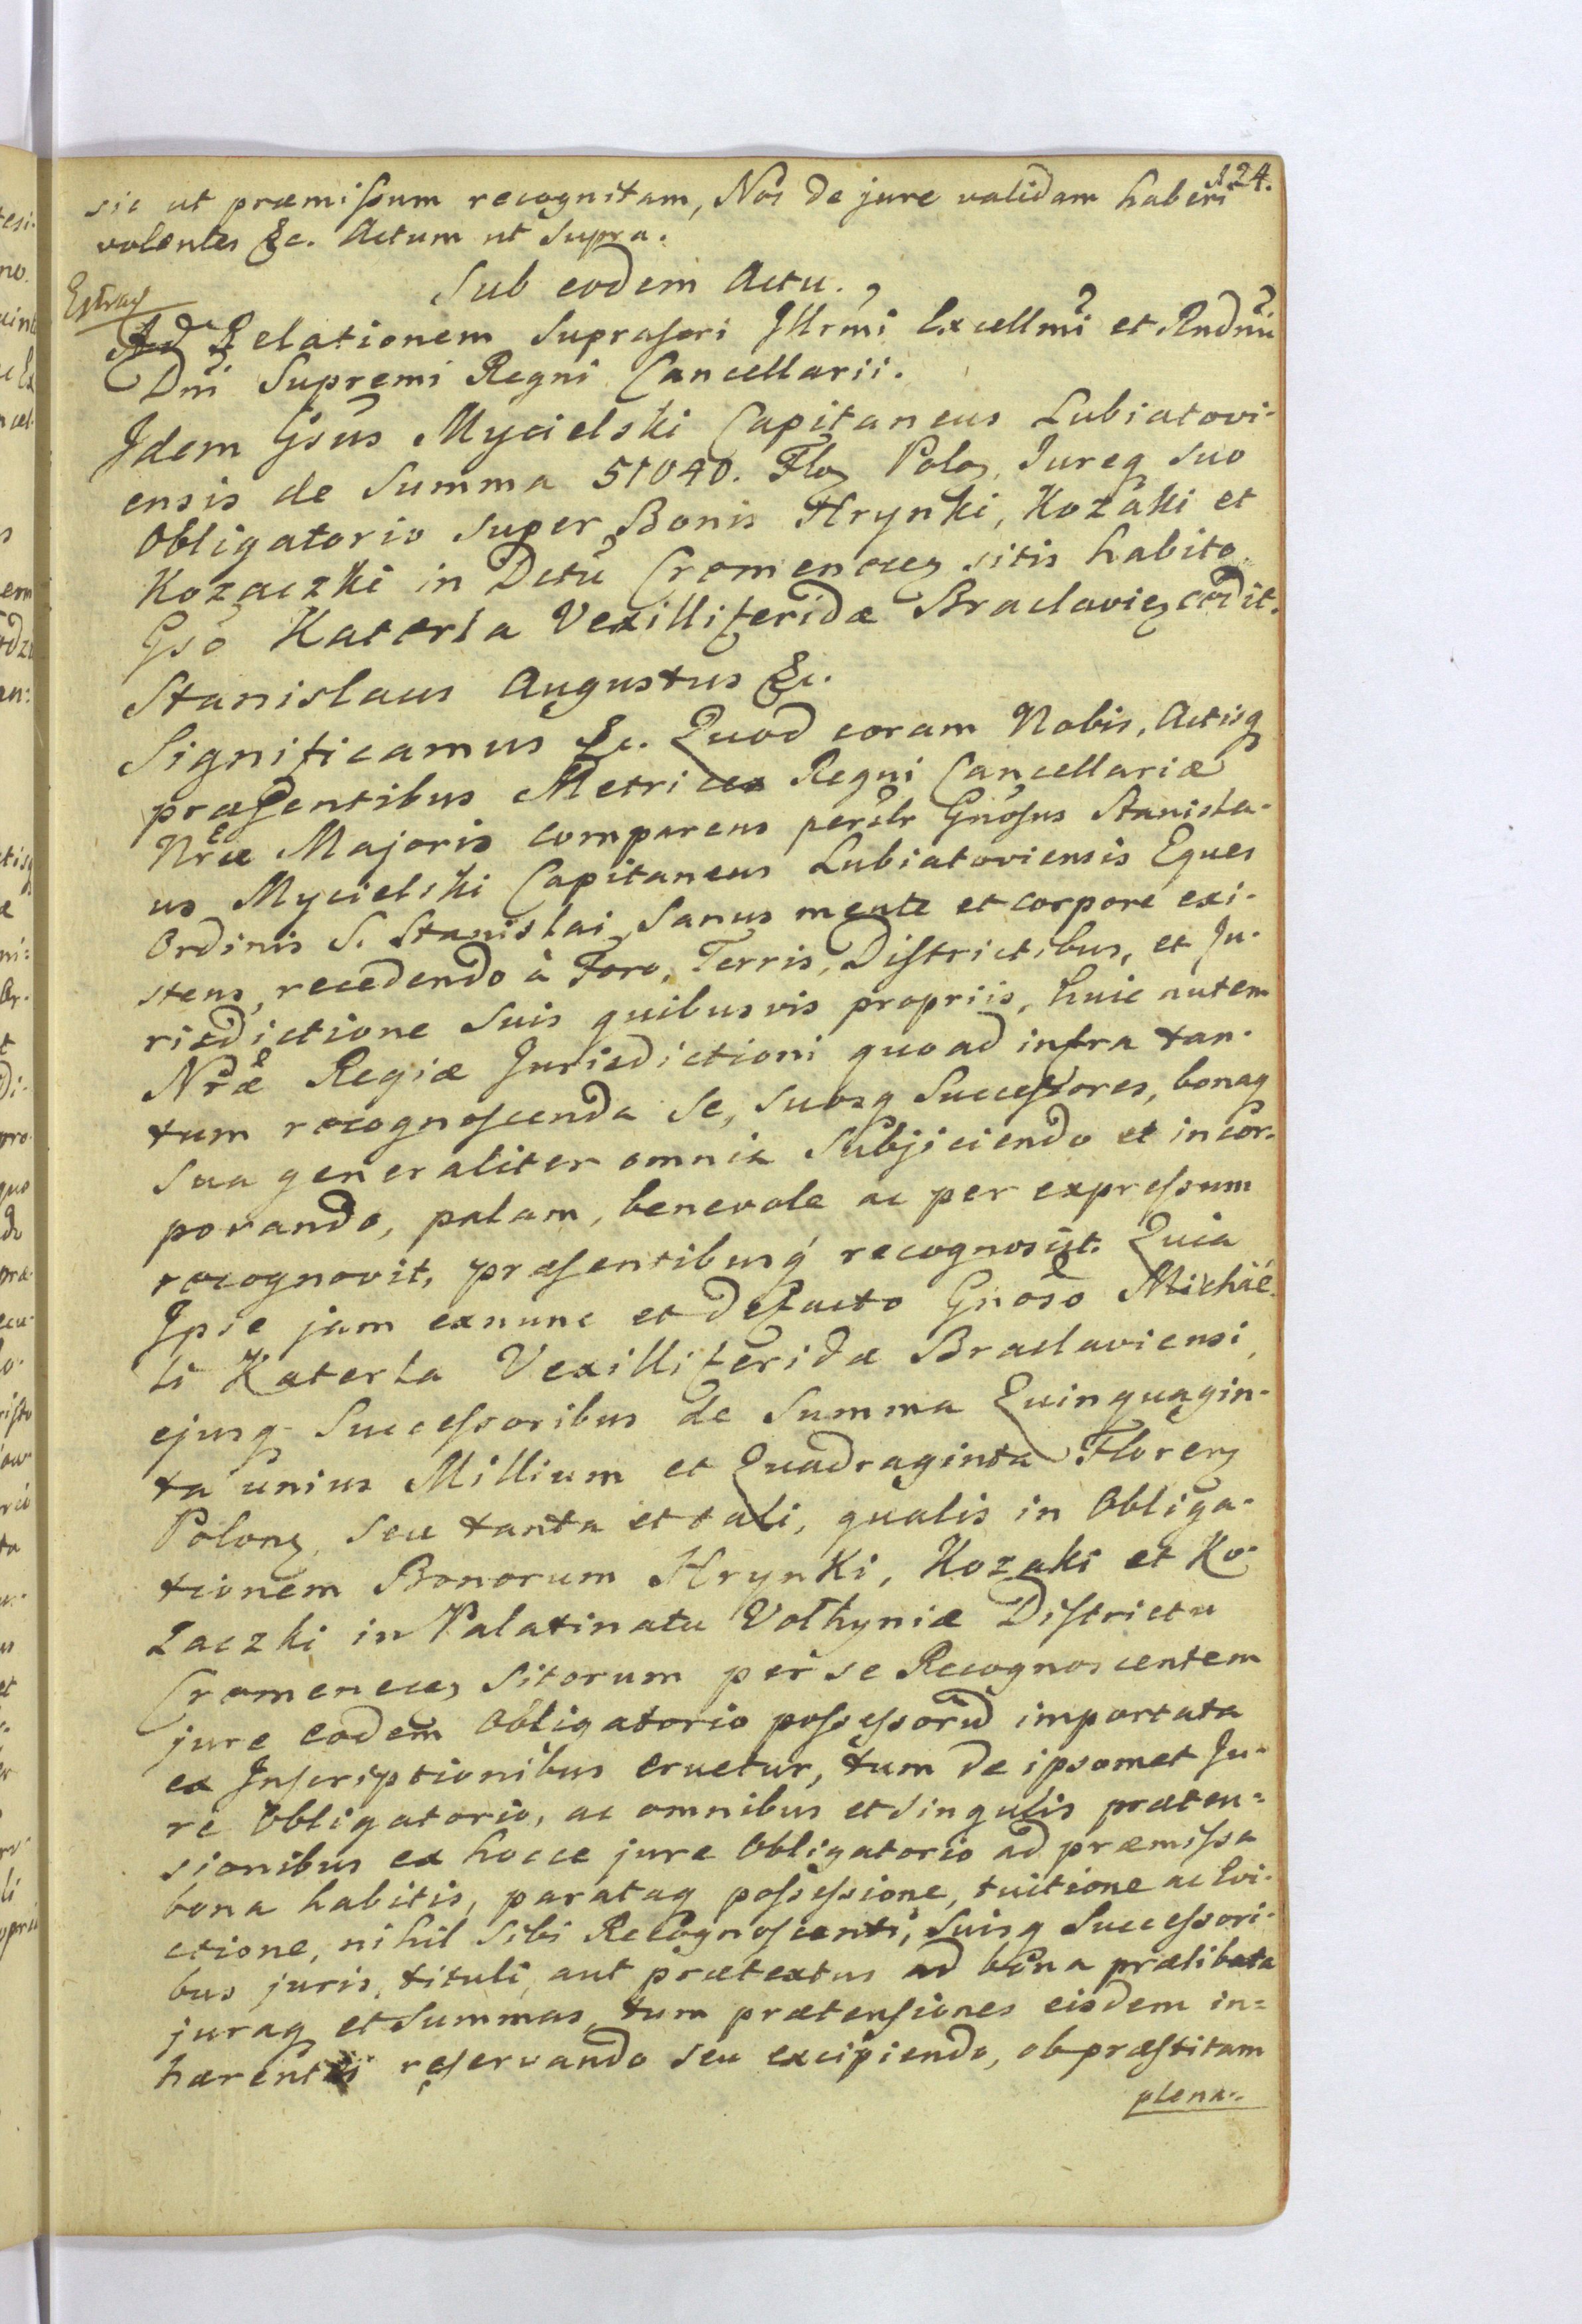 124.
sic ut præmissum recognitam, Nos de jure validam haberi
volentes &c. Actum ut supra.
Sub eodem Actu.
Ad Relationem suprascri Illrmi Excellmi et Rndmi
Dni Supremi Regni Cancellarii.
Idem Gsus Mycielski Capitaneus Lubiatovi-
ensis de Summa 51040. Flo Polo, Jureq suo
Obligatorio super Bonis Hrynki, Kozaki et
Kozaczki in Dctu Cremenecen sitis habito
Gso Katerla Vexilliferidæ Braclavien cedit.
Stanislaus Augustus &c.
Significamus &c. Quod coram Nobis, Actisq
præsentibus Metrices Regni Cancellariæ
Nræ Majoris comparens perslr Gnosus Stanisla-
us Mycielski Capitaneus Lubiatoviensis Eques
Ordinis S. Stanislai, Sanus mente et corpore exi-
stens, recedendo à Foro, Terris, Districtibus, et Ju-
risdictione suis quibusvis propriis, huic autem
Nræ Regiæ Jurisdictioni quoad infra tan-
tum recognoscenda se, suosq Successores, bonaq
sua generaliter omnia subjiciendo et incor-
porando, palam, benevole ac per expressum
recognovit, præsentibusq recognoscit. Quia
Ipse jam exnunc et defacto Gnoso Michaë-
li Katerla Vexilliferidæ Braclaviensi,
ejusq Successoribus de Summa Quinquagin-
ta unius Millium et Quadraginta Floren
Polon, seu tanta et tali, qualis in Obliga-
tionem Bonorum Hrynki, Kozaki et Ko-
zaczki in Palatinatu Volhyniæ Districtu
Cremenecen sitorum per se Recognoscentem
jure eodem Obligatorio possessorũ importata
ex Inscriptionibus eruetur, tum de ipsomet Ju-
re Obligatorio, ac omnibus et singulis præten=
sionibus ex hocce jure Obligatorio ad præmissa
bona habitis, parataq possessione, tuitione ac Evi-
ctione, nihil sibi Recognoscenti, suisq Successori-
bus juris, tituli aut prætextus ad bona prælibata
juraq et Summas, tum prætensiones eisdem in=
hærentes reservando seu excipiendo, ob præstitam
plena-